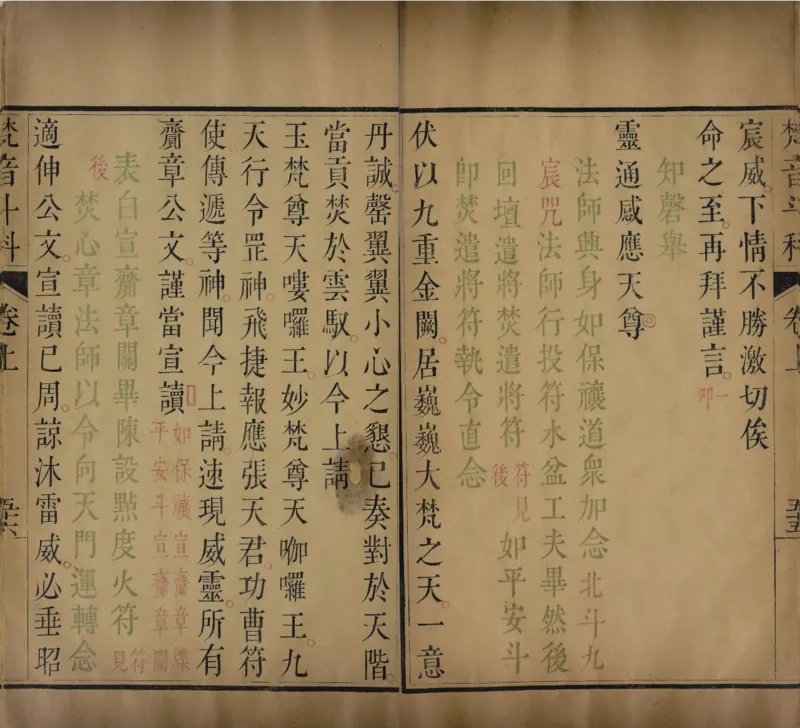 梵音斗科 卷上 五五
宸威。下情不勝激切俟
命之至。再拜謹言。一叩
靈通感應天尊
知磬舉
法師興身如保禳道衆加念北斗九
宸咒法師行投符水盆工夫畢然後
回壇遣將焚遣將符符見後如平安斗
即焚遣將符執令直念
伏以九重金闕。居巍巍大梵之天。一意
丹誠。罄翼翼小心之懇。已奏對於天階。
當貢焚於雲馭。以今上請
玉梵尊天嘍囉王。妙梵尊天唧囉王。九
天行令罡神。飛捷報應張天君。功曹符
使。傳遞等神。聞今上請。速現威靈。所有
齋章公文。謹當宣讀如保禳宣齋章牒平安斗宣齋章關
表白宣齋章關畢陳設點度火符符見後
焚心章法師以令向天門運轉念
適伸公文。宣讀已周。諒沐雷威。必垂昭
梵音斗科 卷上 五六